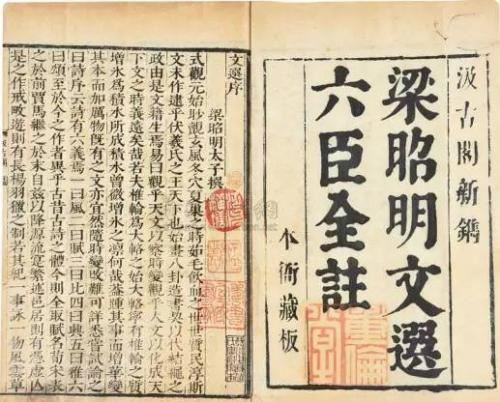 汲古閣新鐫
梁昭明文選
六臣全註
本衙藏板
文選序
梁昭明太子撰
式觀元始眇覿玄風冬穴夏巢之時茹毛飲血之世世質民淳斯
文未作逮乎伏羲氏之王天下也始畫八卦造書契以代結繩之
政由是文籍生焉易曰觀乎天文以察時變觀乎人文以化成天
下文之時義遠矣哉若夫椎輪為大輅之始大輅寧有椎輪之質
增冰為積水所成積水曾微增冰之凛何哉葢踵其事而增華變
其本而加厲物既有之文亦宜然隨時變改難可詳悉嘗試論之
曰詩序云詩有六義焉一曰風二曰賦三曰比四曰興五曰雅六
曰頌至於今之作者異乎古昔古詩之體今則全取賦名荀宋表
之於前賈馬繼之於末自茲以降源流寔繁述邑居則有憑虛亾
是之作戒畋遊則有長楊羽獵之制若其紀一事詠一物風雲草